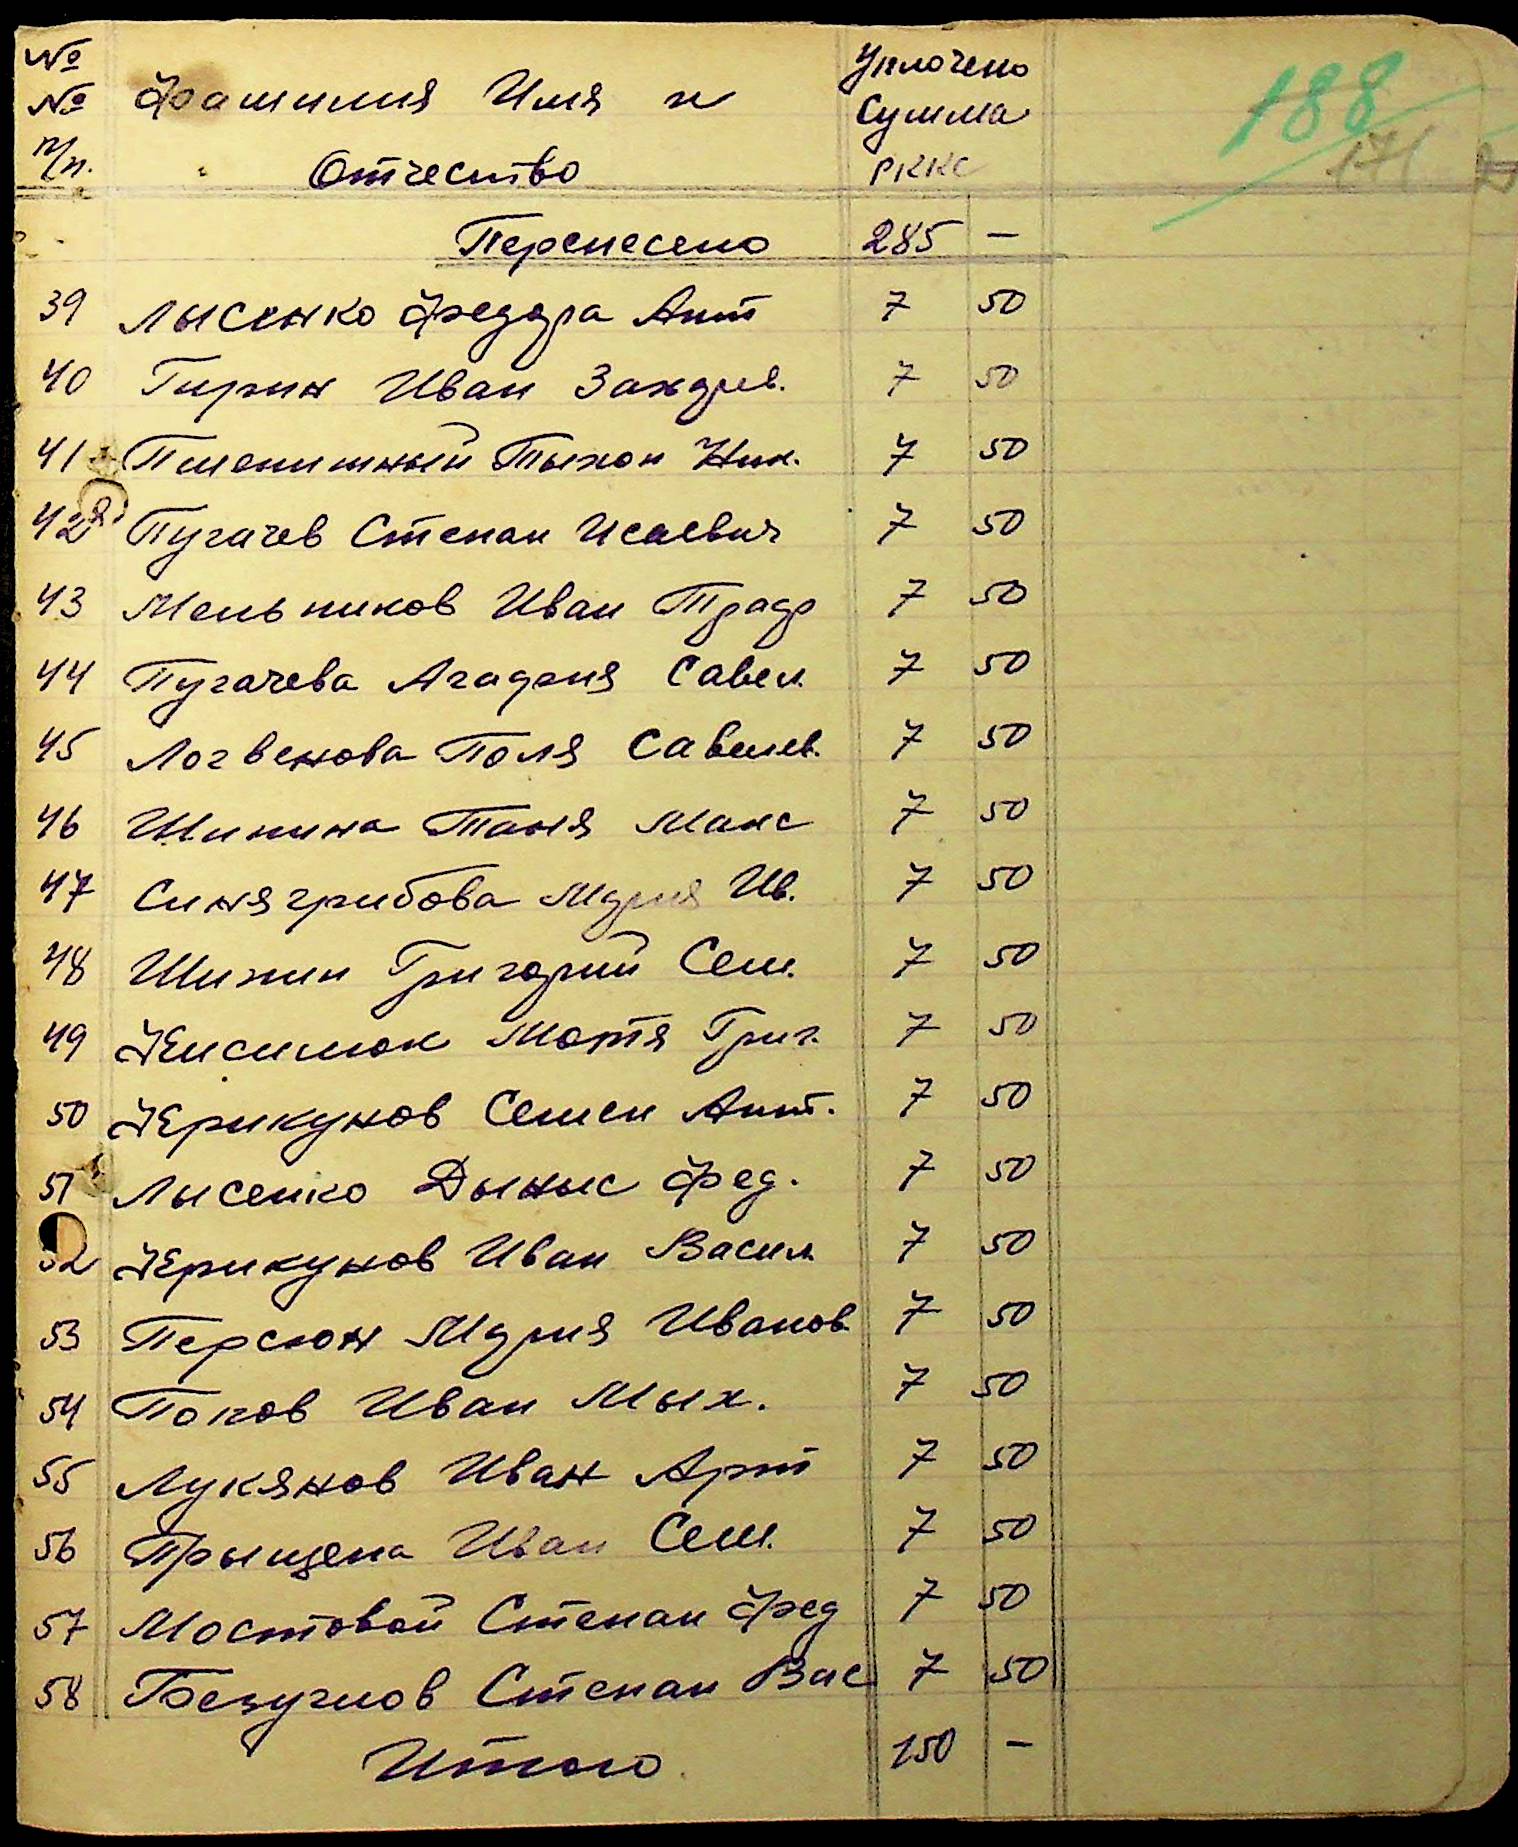 № Уплочено
№ Фамилия Имя и Сумма 188
п/п. Отчество РККС 171
Перенесено 285 —
39 Лысенко Федора Ант 7 50
40 Гирин Иван 7 50
41 Пшенишный Тыхон Ник. 7 50
42 Пугачев Степан Исаевич 7 50
43 Мельников Иван 7 50
44 Пугачева Агафия Савел 7 50
45 Логвенова Поля Савелев. 7 50
46 Шинина Таня Макс 7 50
47 Синягрибова Мария Ив. 7 50
48 Шинин Григорий Сем. 7 50
49 Мотя Григ. 7 50
50 Черикунов Семен Ант. 7 50
51 Лысенко Дыныс Фед. 7 50
52 Черикунов Иван Васил 7 50
53 Персюн Мария Иванов 7 50
54 Попов Иван Мых. 7 50
55 Лукянов Иван Арт 7 50
56 Прыщепа Иван Сем. 7 50
57 Мостовой Степан Фед 7 50
58 Безуглов Степан Вас 7 50
Итого 150 —